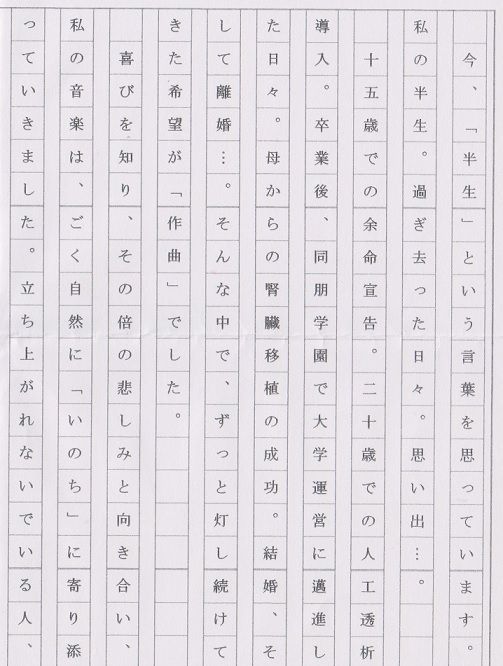 今、「半生」という言葉を思っています。
私の半生。過ぎ去った日々。思い出…。
十五歳での余命宣告。二十歳での人工透析
導入。卒業後、同朋学園で大学運営に邁進し
た日々。母からの腎臓移植の成功。結婚、そ
して離婚…。そんな中で、ずっと灯し続けて
きた希望が「作曲」でした。
喜びを知り、その倍の悲しみと向き合い、
私の音楽は、ごく自然に「いのち」に寄り添
っていきました。立ち上がれないでいる人、